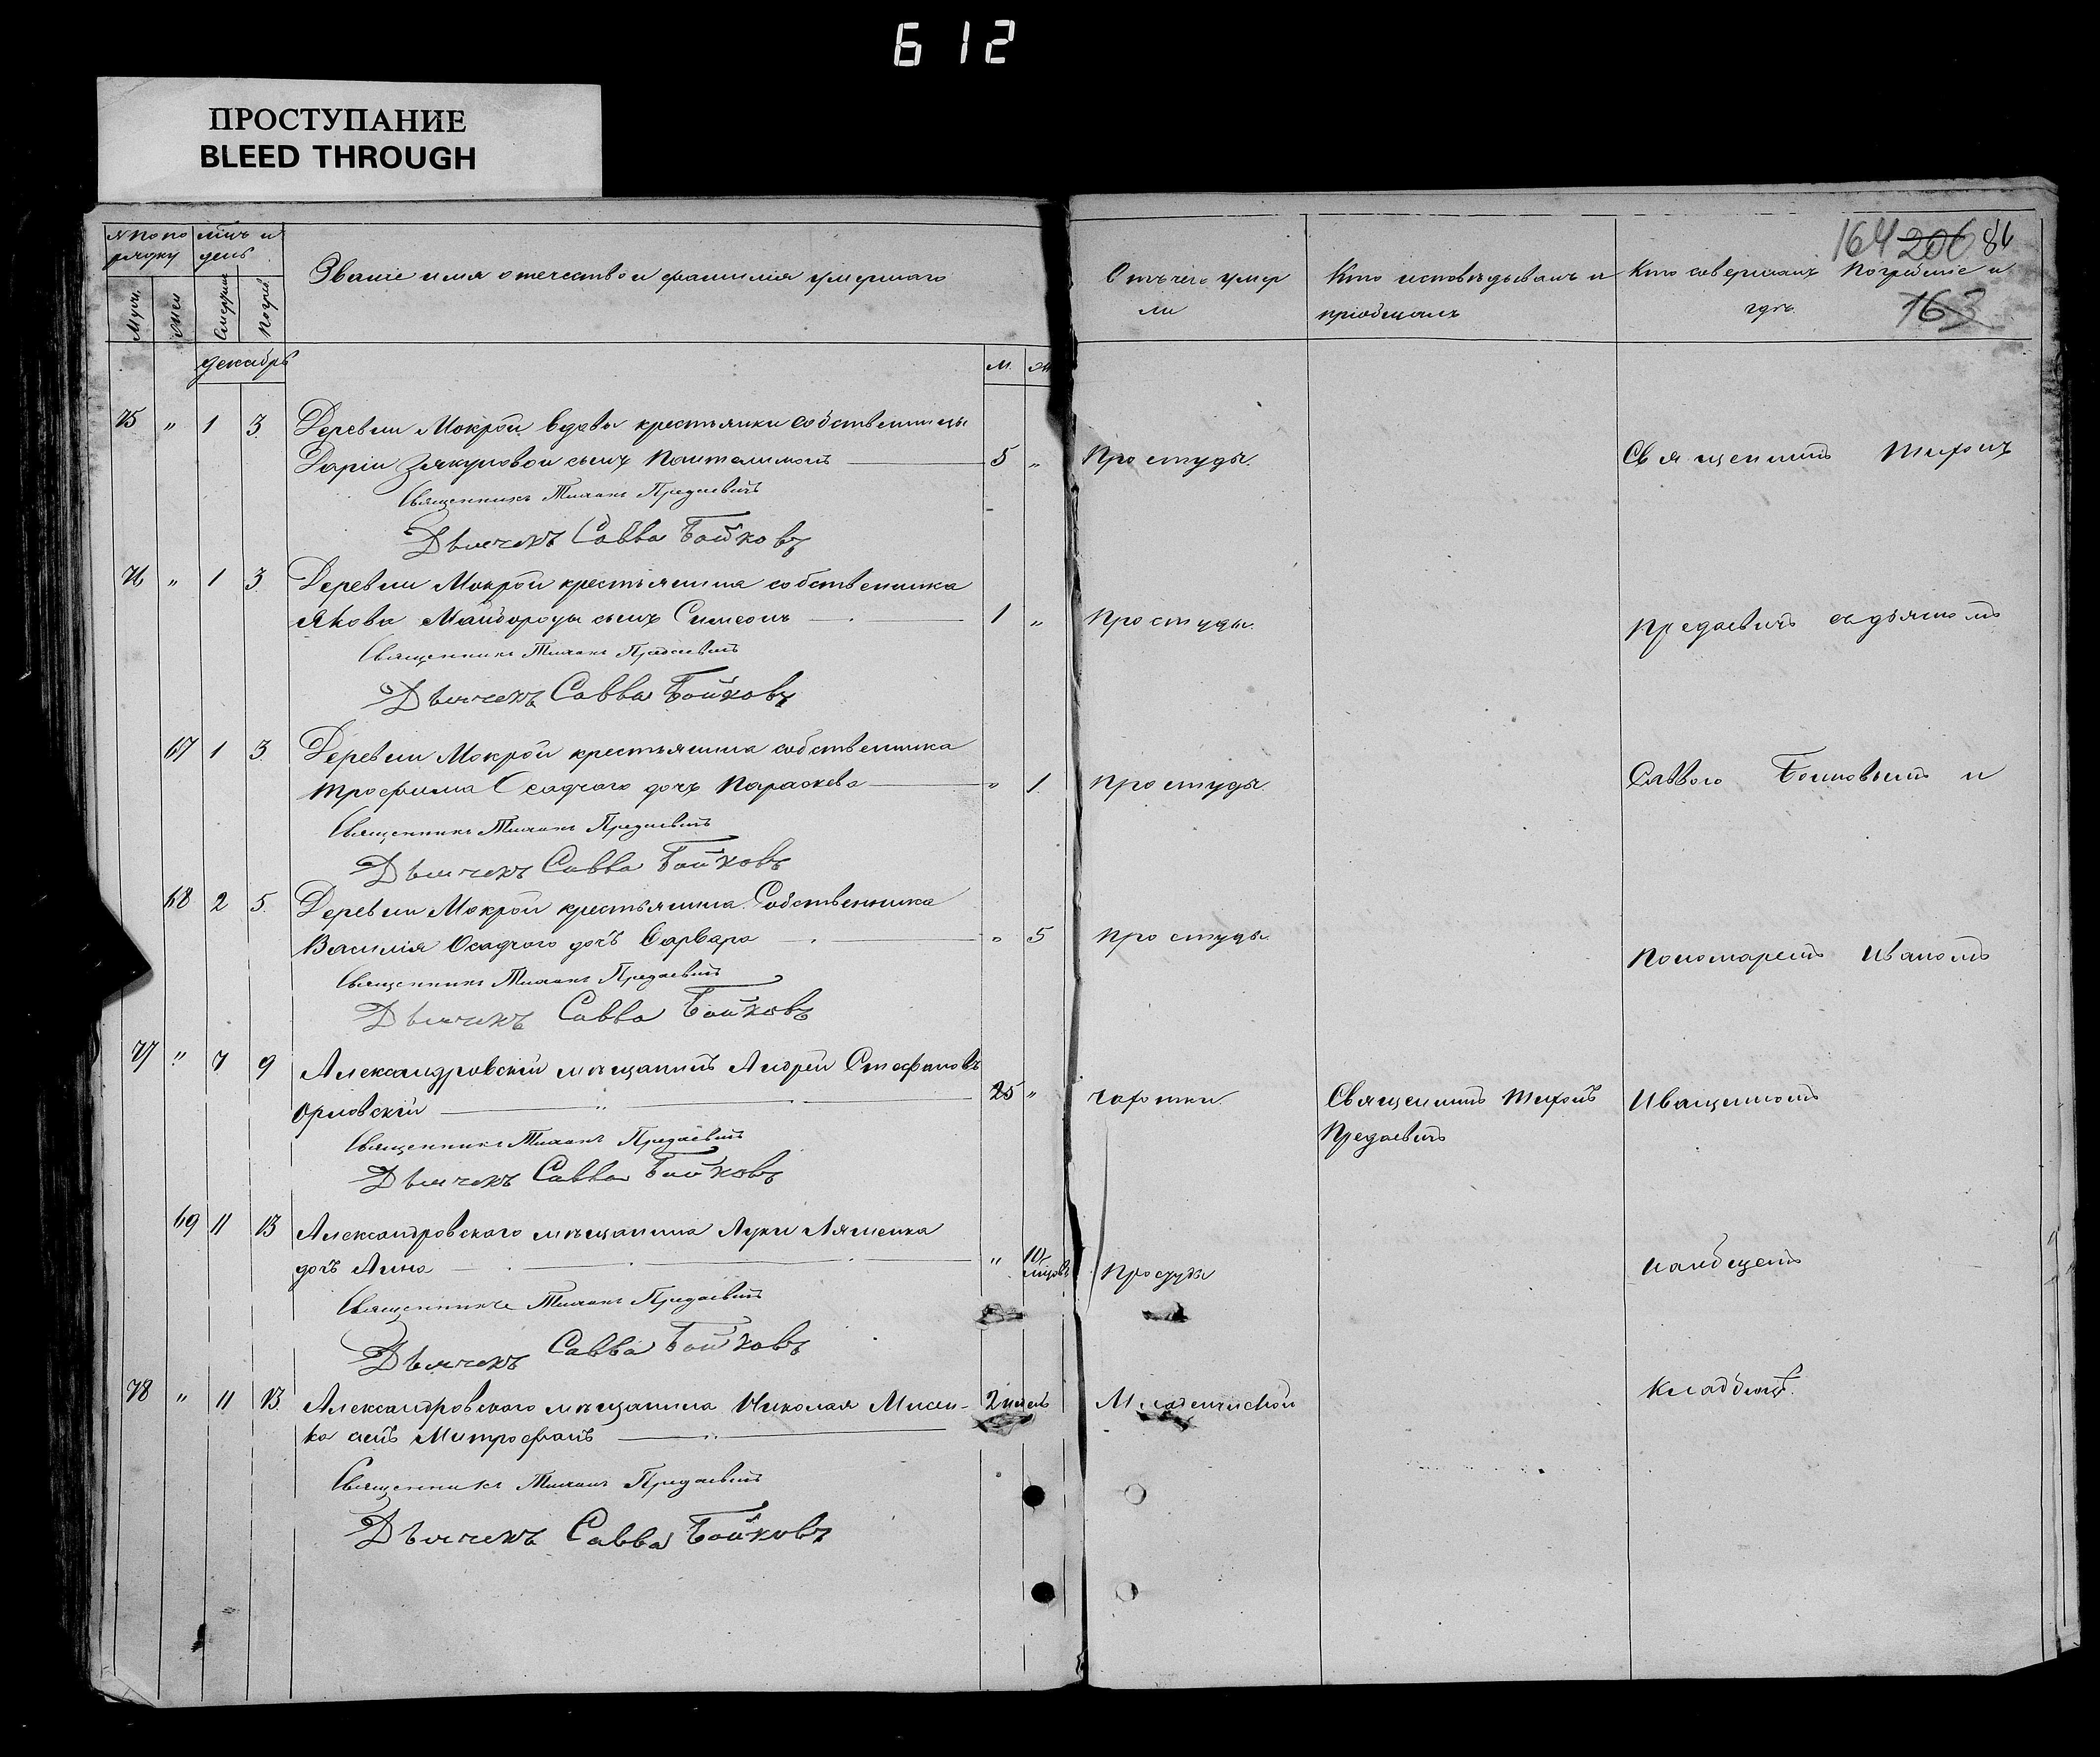 612
ПРОСТУПАНИЕ
BLEED THROUGH
164 206 86
163
№ по по рядку
мѣсъ и день
Муж.
Жен
Смерти
Погреб
Званіе имя отчество и фамилія умершаго
Отъ чего умер
ли
Кто исповѣдывалъ и
пріобщалъ
Кто совершалъ Погребеніе и
гдѣ.
декабрь
М. Ж
75 " 1 3. Деревни Мокрой вдовы крестьянки собственницы
Даріи сынъ Пантелимонъ 5 " Простуды. Священникъ Тихонъ
Священникъ Тихонъ Предаевичъ
Дьячекъ Савва Бойковъ
76 " 1 3. Деревни Мокрой крестьянина собственника
Якова Майбороды сынъ Симеонъ 1 " Простуды. Предаевичъ съ дьячкомъ
Священникъ Тихонъ Предаевичъ
Дьячекъ Савва Бойковъ
67 1 3. Деревни Мокрой крестьянина собственника
Трофима Осадчаго дочь Параскева " 1. Простуды. Саввою Бойковымъ и
Священникъ Тихонъ Предаевичъ
Дьячекъ Савва Бойковъ
68 2 5. Деревни Мокрой крестьянина Собственника
Василія Осадчого дочь Варвара " 5 Простуды. Пономаремъ Иваномъ
Священникъ Тихонъ Предаевичъ
Дьячекъ Савва Бойковъ
77 " 7 9 Александровскій мѣщанинъ Андрей Стефановъ
Орловскій 25 " Чахотки. Священникъ Тихонъ Иващенкомъ
Предаевичъ
Священникъ Тихонъ Предаевичъ
Дьячекъ Савва Бойковъ
69 11 13 Александровского мѣщанина Луки Ляшенка
дочь Анна " 10 мѣсцовъ Простуды на общемъ
Священникъ Тихонъ Предаевичъ
Дьячекъ Савва Бойковъ
78 " 11 13. Александровского мѣщанина Николая Мисен- 2 недѣл Младенческой кладбищѣ.
ка сынъ Митрофанъ
Священникъ Тихонъ Предаевичъ
Дьячекъ Савва Бойковъ